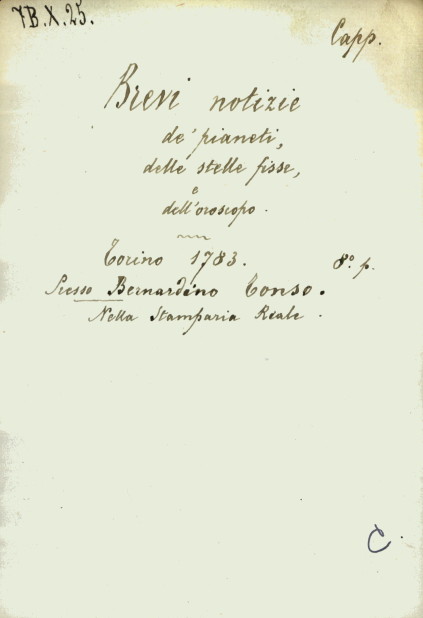 7B.X.25.
Capp.
Brevi notizie
de' pianeti,
delle stelle fisse,
e
dell'oroscopo.
Torino 1783. 8º. p.
Presso Bernardino Tonso.
Nella Stamparia Reale.
C